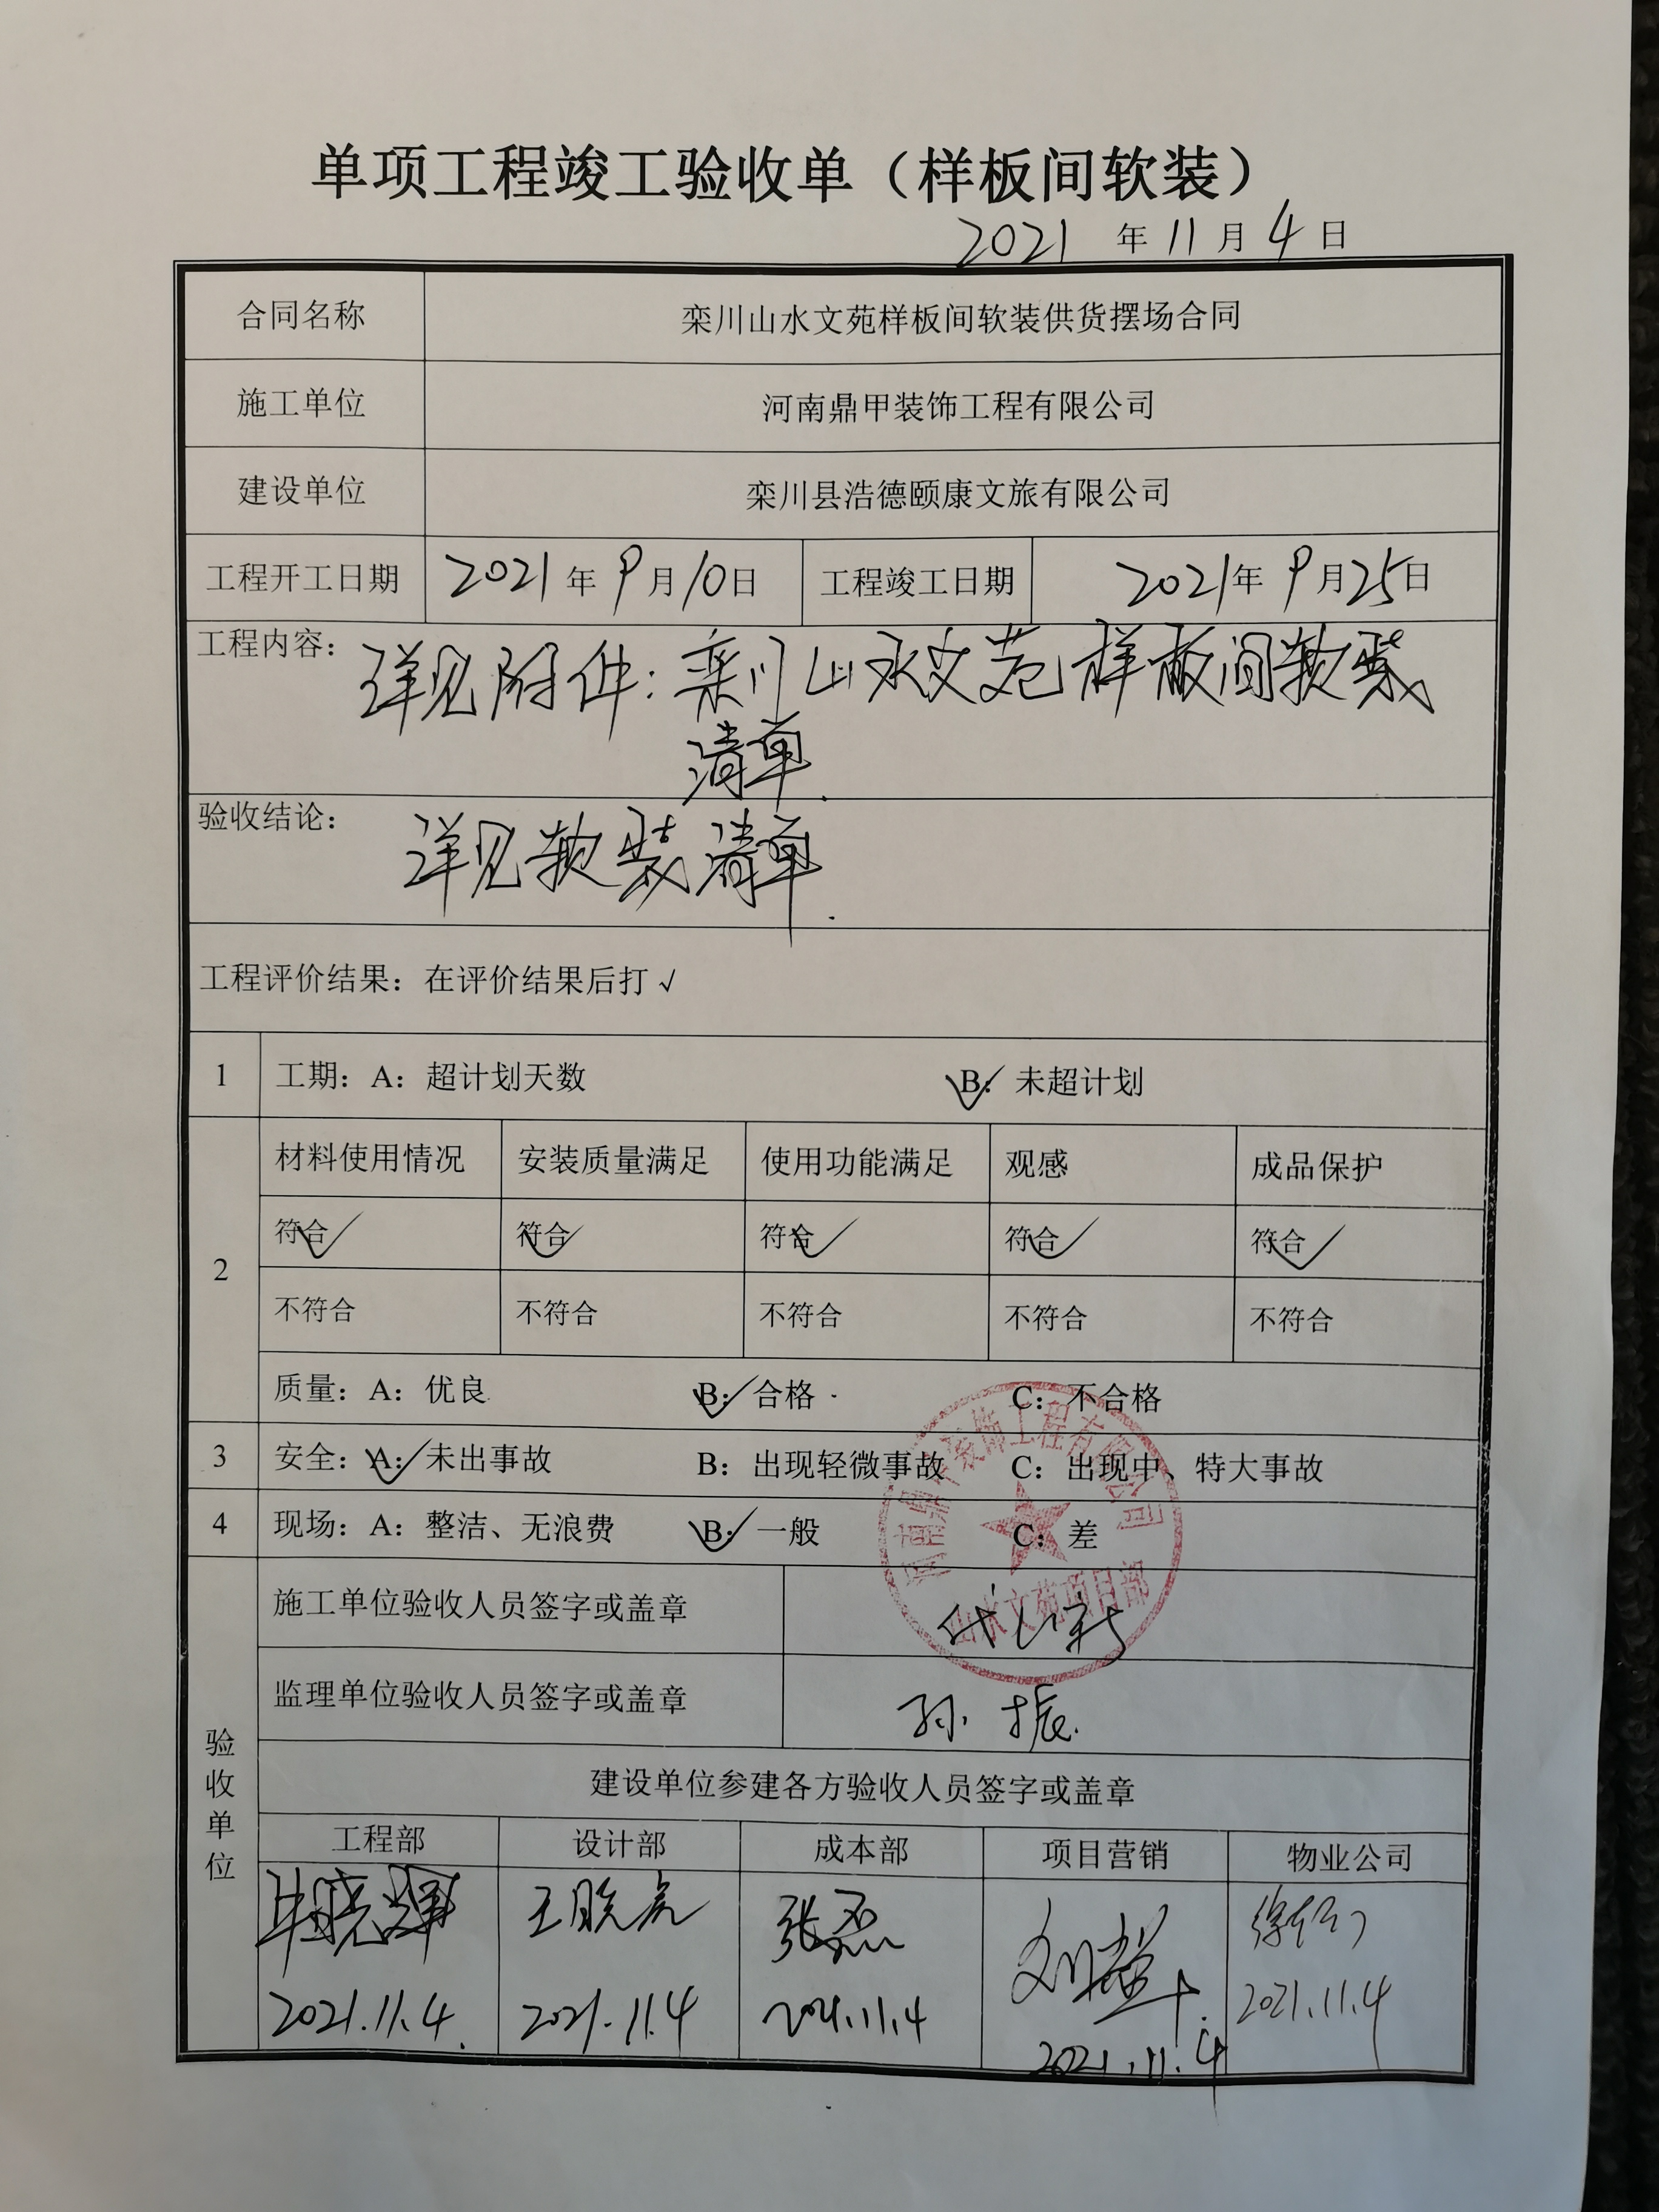 单项工程竣工验收单（样板间软装）
2021 年 11 月 4 日
合同名称 栾川山水文苑样板间软装供货摆场合同
施工单位 河南鼎甲装饰工程有限公司
建设单位 栾川县浩德颐康文旅有限公司
工程开工日期 2021 年 9 月 10 日 工程竣工日期 2021 年 9 月 25 日
工程内容：详见附件：栾川山水文苑样板间软装
清单.
验收结论：详见软装清单.
工程评价结果：在评价结果后打 √
1 工期：A：超计划天数 B：√ 未超计划
材料使用情况 安装质量满足 使用功能满足 观感 成品保护
符合√ 符合√ 符合√ 符合√ 符合√
2
不符合 不符合 不符合 不符合 不符合
质量：A：优良 B：√ 合格 C：不合格
3 安全：A：√ 未出事故 B：出现轻微事故 C：出现中、特大事故
4 现场：A：整洁、无浪费 B：√ 一般 C：差
河南鼎甲装饰工程有限公司
山水文苑项目部
验收单位
施工单位验收人员签字或盖章
监理单位验收人员签字或盖章 孙振
建设单位参建各方验收人员签字或盖章
工程部 设计部 成本部 项目营销 物业公司
王晓亮 张磊
2021.11.4. 2021.11.4 2021.11.4 2021.11.4 2021.11.4